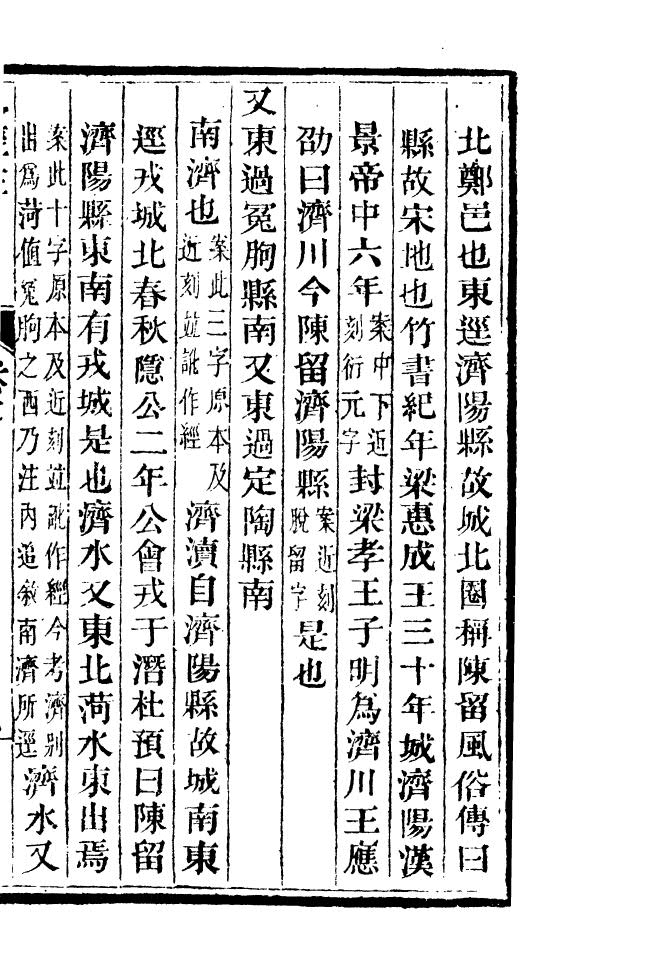 北鄭邑也東逕濟陽縣故城北圈稱陳留風俗傳曰
縣故宋地也竹書紀年梁惠成王三十年城濟陽漢
景帝中六年案中下近刻衍元字封梁孝王子明爲濟川王應
劭曰濟川今陳留濟陽縣案近刻脫留字是也
又東過冤朐縣南又東過定陶縣南
南濟也案此三字原本及近刻並訛作經濟瀆自濟陽縣故城南東
逕戎城北春秋隱公二年公會戎于潛杜預曰陳留
濟陽縣東南有戎城是也濟水又東北菏水東出焉
案此十字原本及近刻並訛作經今考濟別出爲菏值冤朐之西乃注內追敘南濟所逕濟水又